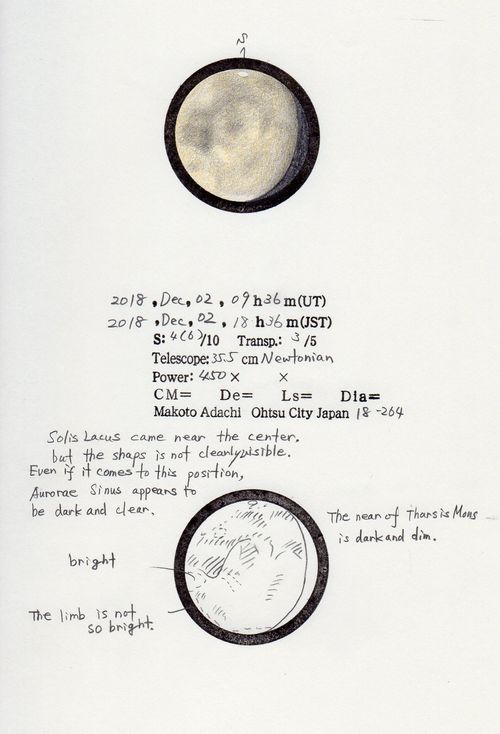 N
2018, Dec, 02, 09 h 36 m (UT)
2018, Dec, 02, 18 h 36 m (JST)
S: 4(6)/10 Transp.: 3 /5
Telescope: 35.5 cm Newtonian
Power: 450 × ×
CM= De= Ls= Dia=
Makoto Adachi Ohtsu City Japan 18-264
Solis Lacus came near the center.
but the shaps is not clearly visible.
Even if it comes to this position,
Aurorae Sinus appears to
be dark and clear.
The near of Tharsis Mons
is dark and dim.
bright
The limb is not
so bright.